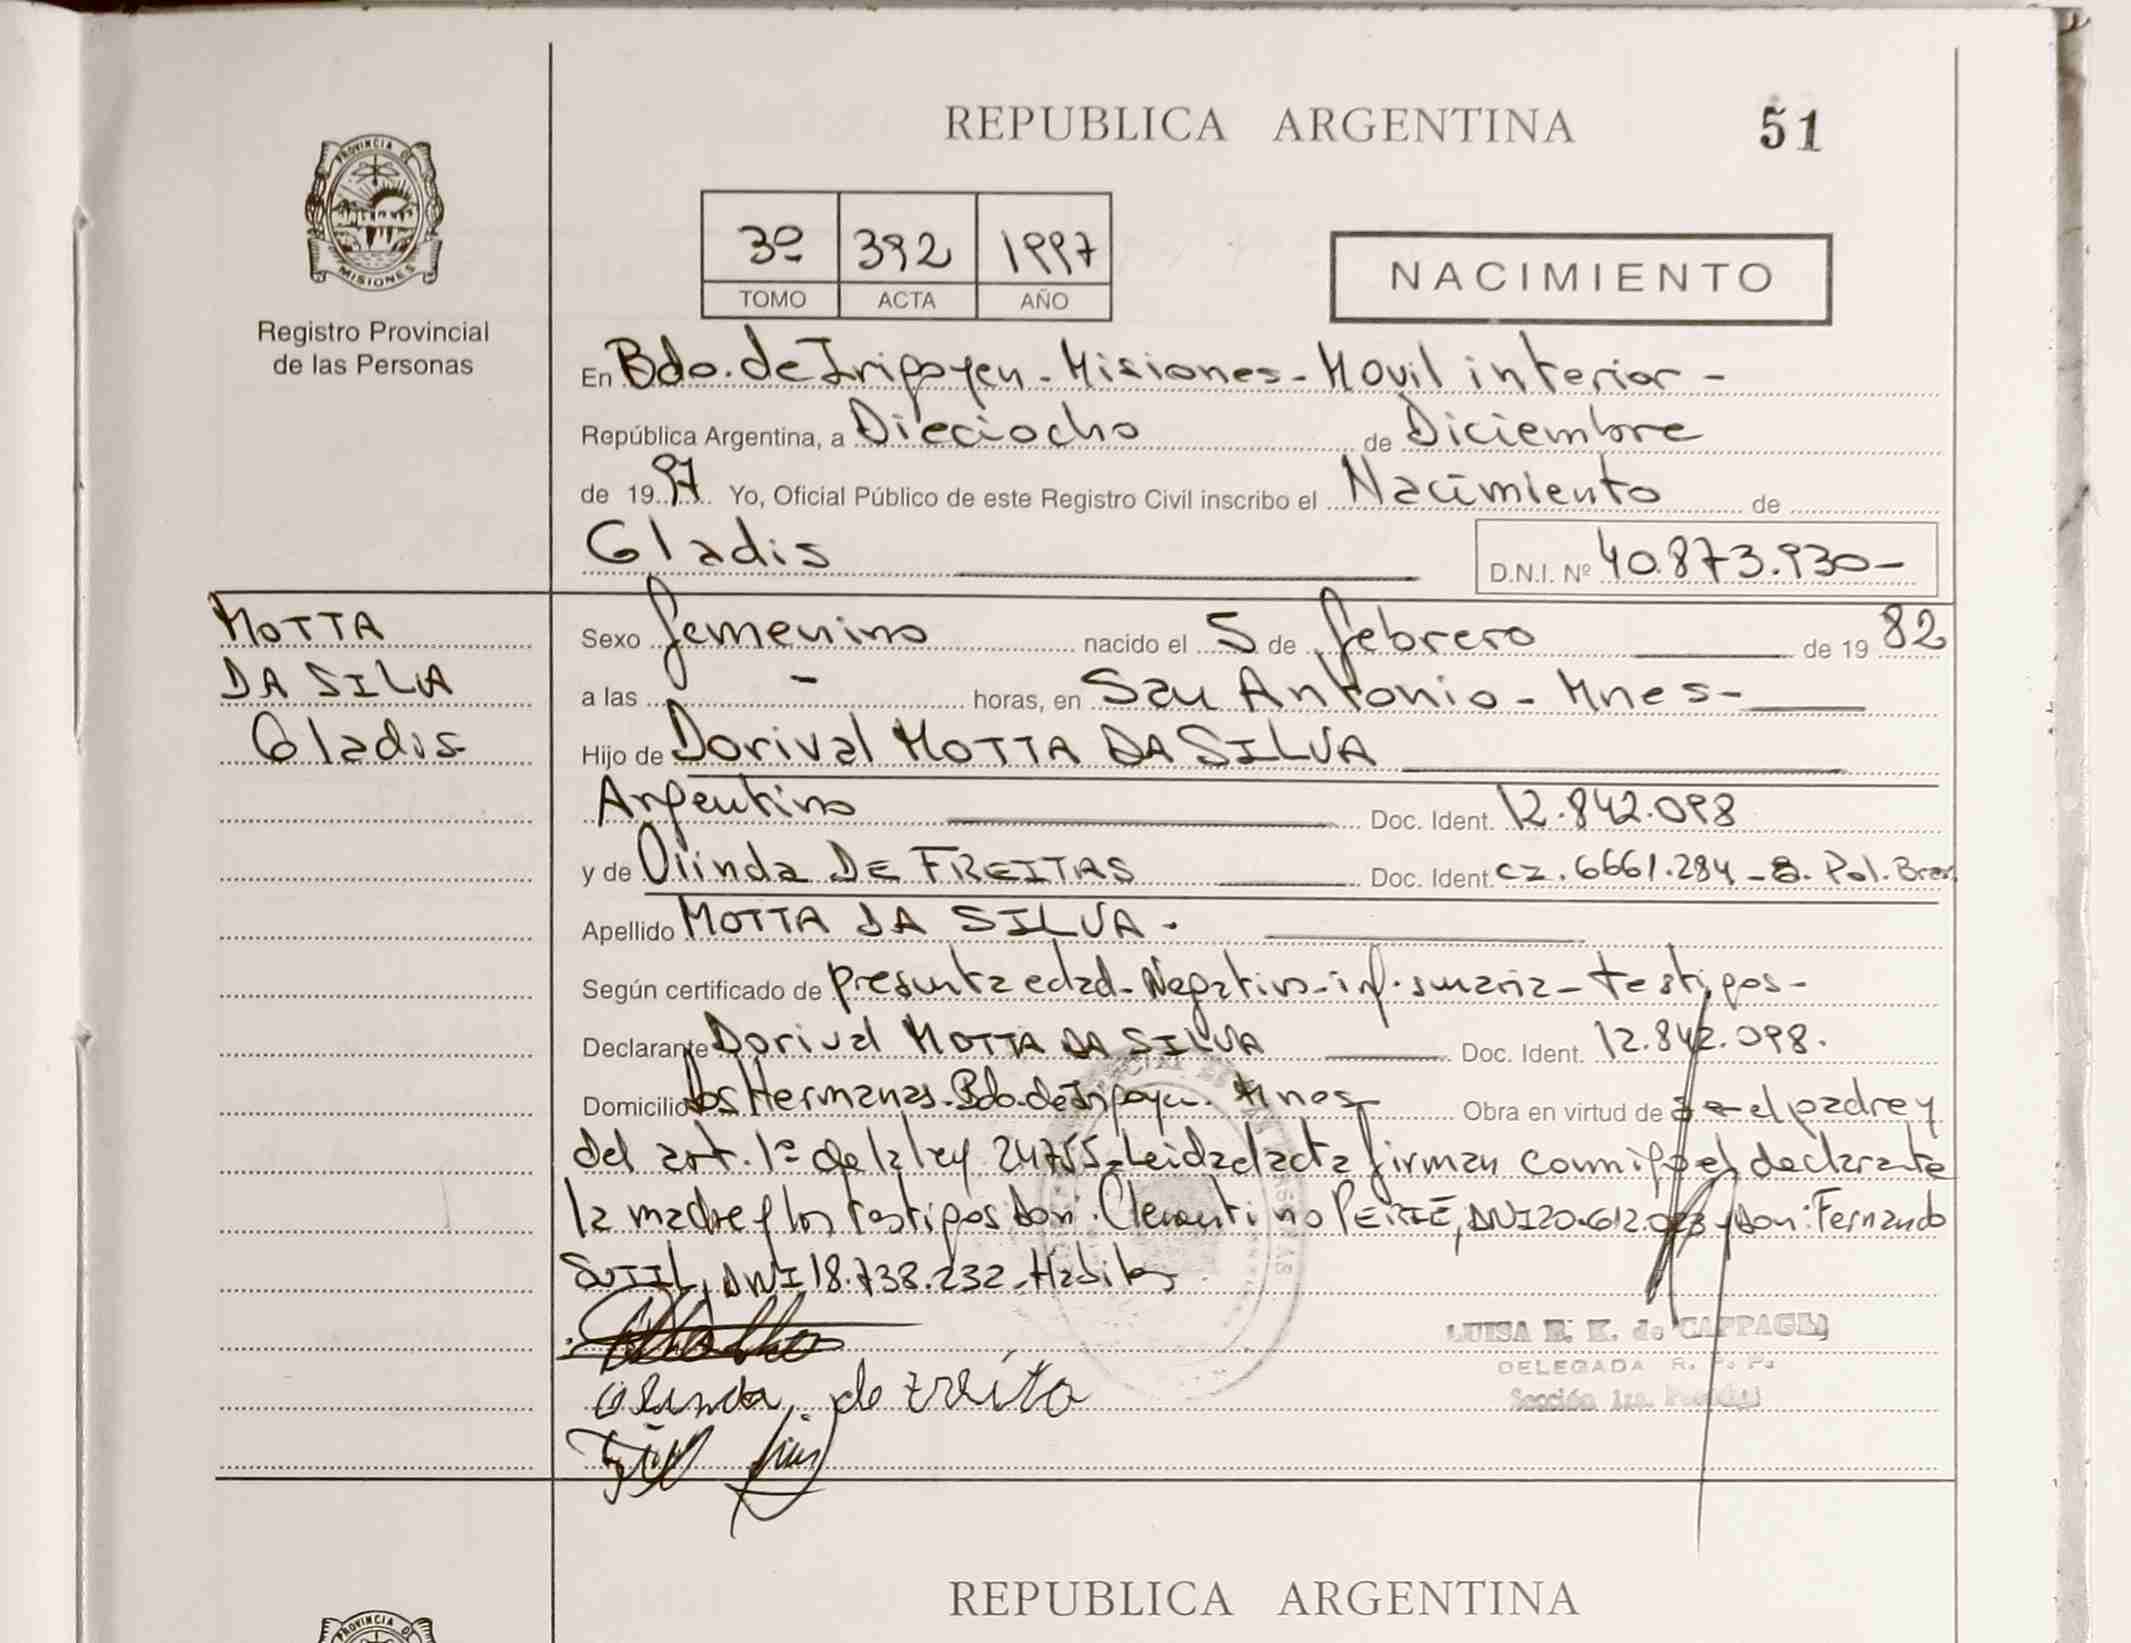 REPUBLICA ARGENTINA 51
PROVINCIA DE
MISIONES
Registro Provincial
de las Personas
3º 392 1997
TOMO ACTA AÑO
NACIMIENTO
En Bdo. de Irigoyen - Misiones - Movil interior -
República Argentina, a Dieciocho de Diciembre
de 19 97 Yo, Oficial Público de este Registro Civil inscribo el Nacimiento de
Gladis D.N.I. Nº 40.873.930-
MOTTA
DA SILVA
Gladis
Sexo femenino nacido el 5 de febrero de 19 82
a las - horas, en San Antonio - Mnes -
Hijo de Dorival MOTTA DA SILVA
Argentino Doc. Ident. 12.842.098
y de Olinda DE FREITAS Doc. Ident. cz. 6661.284 - Pol. Bras
Apellido MOTTA DA SILVA.
Según certificado de presunta edad - Negativo - inf. sumaria - testigos -
Declarante Dorival MOTTA DA SILVA Doc. Ident. 12.842.098.
Domicilio Dos Hermanas. Bdo. de Irigoyen. Mnes Obra en virtud de el padre y
del art. 1º de la ley 24755 - Leida el acta firman conmigo el declarante
la madre y los testigos don: Clementino PERIE, DNI 20.612.023 y don: Fernando
DNI 18.738.232 - Habiles
Olinda de Freita
LUISA E. K. de CAPPAGLI
DELEGADA R. P. P.
Sección 1ra.
REPUBLICA ARGENTINA
PROVINCIA DE